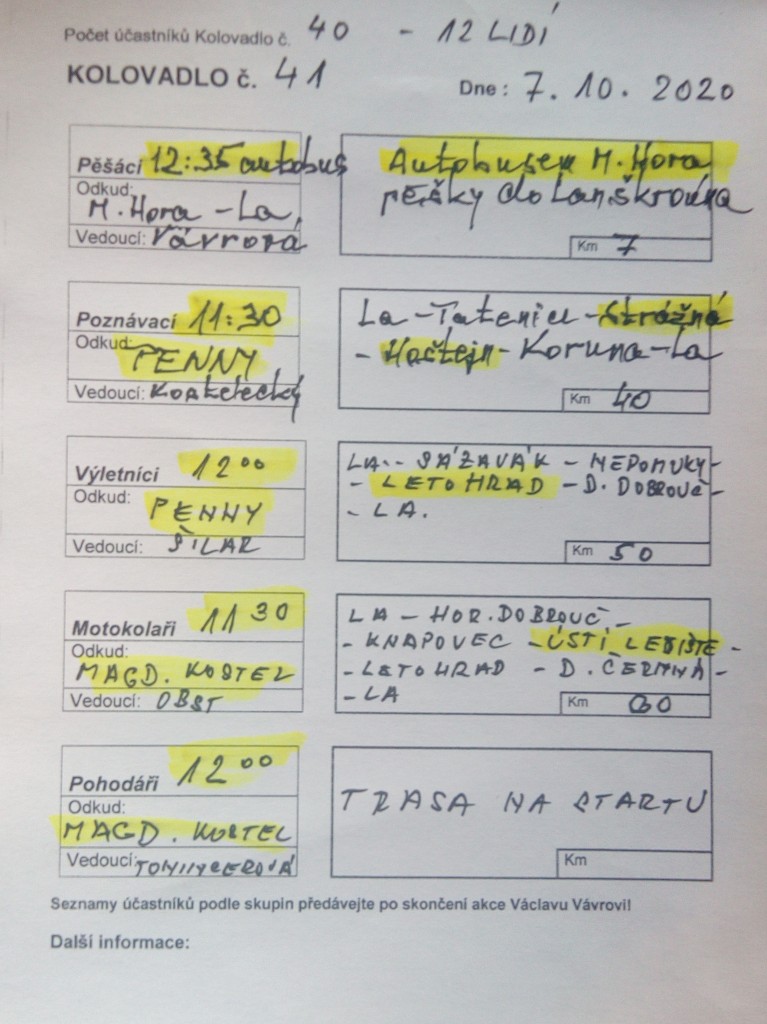 Počet účastníků Kolovadlo č. 40 - 12 LIDÍ
KOLOVADLO č. 41
Dne : 7. 10. 2020
Pěšáci 12:35 autobus
Odkud:
M. Hora - La,
Vedoucí: Vávrova
Autobusem M. Hora
pěšky do Lanškrouna
Km 7
Poznávací 11:30
Odkud:
PENNY
Vedoucí:
La - Tatenice - Strážná
- Hoštejn - Koruna - La
Km 40
Výletníci 12 00
Odkud:
PENNY
Vedoucí: ŠILAR
LA. - SÁZAVÁK - NEPOMUKY -
- LETOHRAD - D. DOBROUČ -
- LA.
Km 50
Motokolaři 11 30
Odkud:
MAGD. KOSTEL
Vedoucí: OBST
LA - HOR. DOBROUČ -
- KNAPOVEC - ÚSTÍ LETIŠTE -
- LETOHRAD - D. ČERMNÁ -
- LA
Km
Pohodáři 12 00
Odkud:
MAGD. KOSTEL
Vedoucí:
TRASA NA STARTU
Km
Seznamy účastníků podle skupin předávejte po skončení akce Václavu Vávrovi!
Další informace: